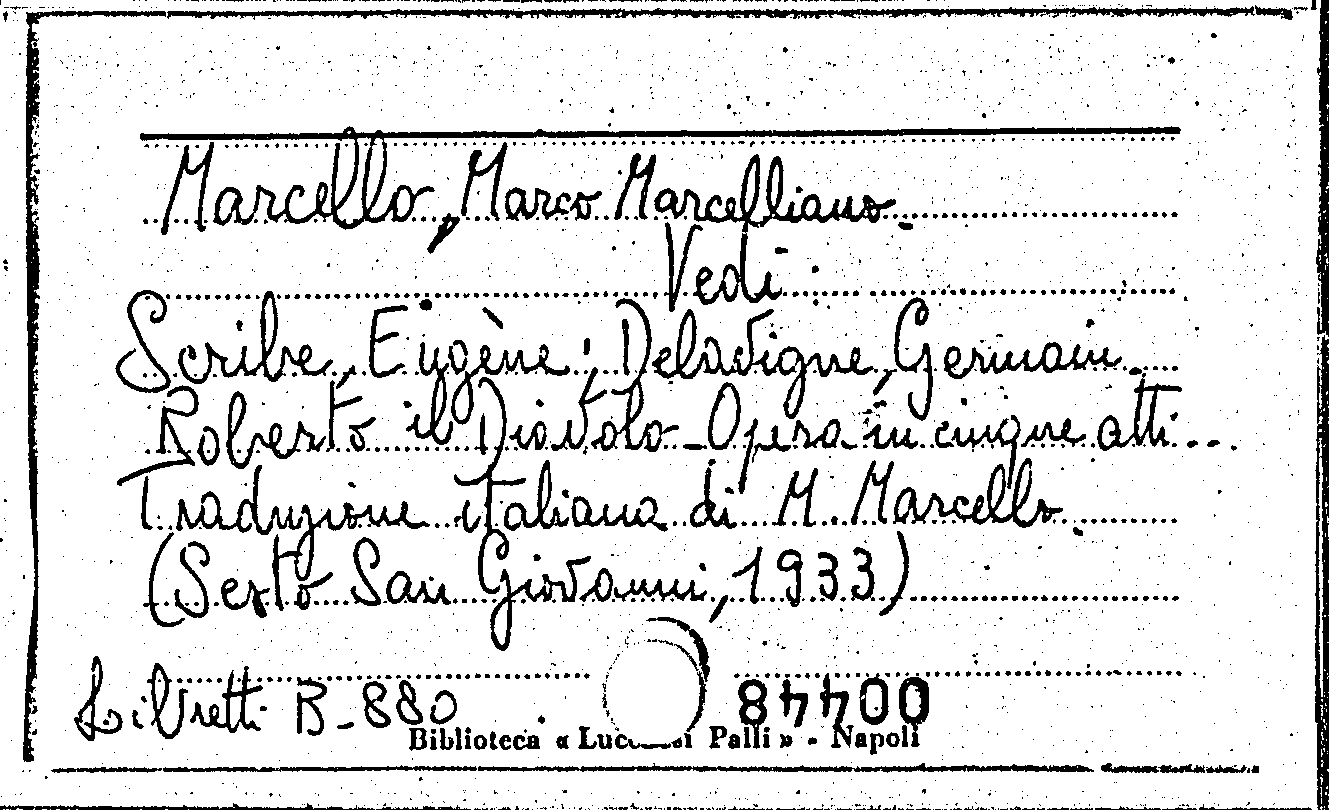 Marcello, Marco Marcelliano.
Vedi:
Scribe, Eugène; Delavigne, Germain.
Roberto il Diavolo - Opera in cinque atti...
Traduzione italiana di M. Marcello.
(Sesto San Giovanni, 1933)
Libretti B-880
00448
Biblioteca « Luc si Palli » - Napoli